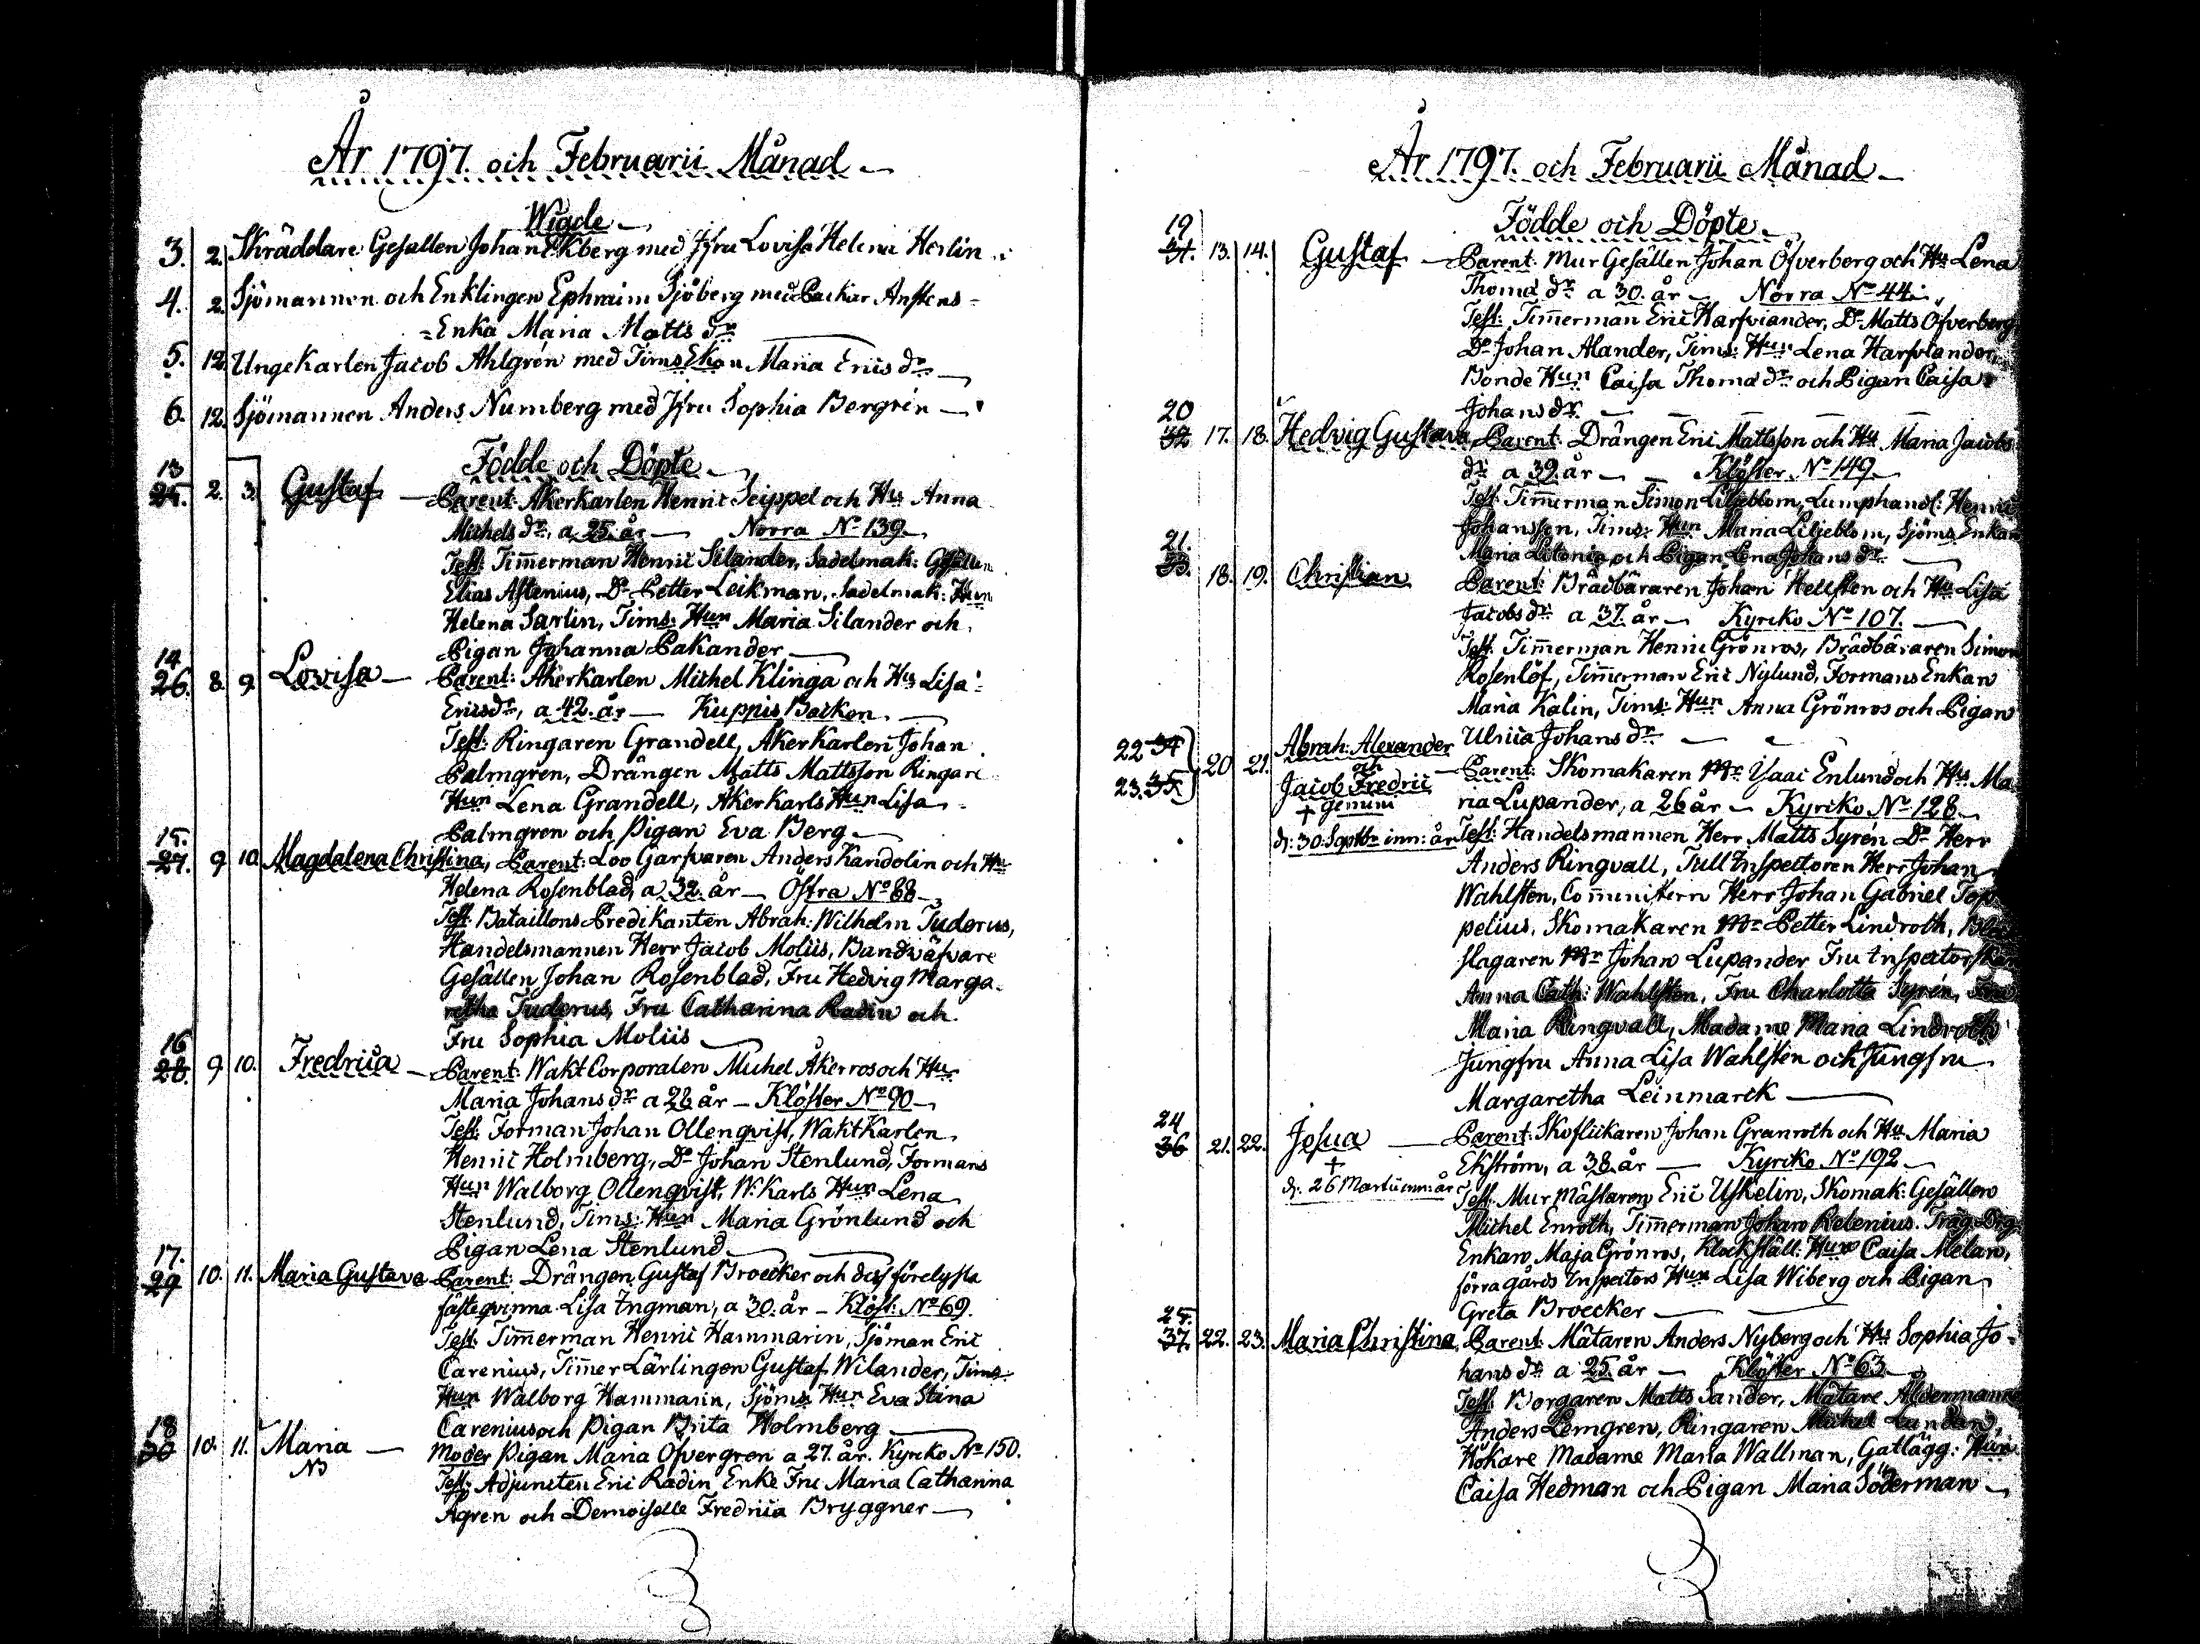 År 1797. och Februarii Månad
Wigde
3. 2. Skräddare Gesällen Johan Ekberg med Jfru Lovisa Helena Herlin
4. 2. Sjömannen och Enklingen Ephraim Sjöberg med Backar Anstens-
=Enka Maria Matts dr
5. 12. Unge Karlen Jacob Ahlgrén med Tims Ekan Maria Erics dr
6. 12. Sjömannen Anders Numberg med Jfru Sophia Bergrén
Födde och Döpte
13
25. 2. 3. Gustaf Parent: Åkerkarlen Henric Seippel och Hu Anna
Michels dr, a 25 år Norra No 139.
Test: Timmerman Henric Silander, Sadelmak: Gesällen
Elias Astenius, Do Petter Leikman, Sadelmak: Hun
Helena Sarlin, Tims: Hun Maria Silander och
Pigan Johanna Pakander
14
26. 8. 9. Lovisa Parent: Åkerkarlen Michel Klinga och Hu Lisa
Ericsdr, a 42. år Kuppis Backen.
Test: Ringaren Grandell, Åkerkarlen Johan
Palmgren, Drängen Matts Mattsson Ringare
Hun Lena Grandell, Åkerkarls Hun Lisa
Palmgren och Pigan Eva Berg
15.
27. 9 10. Magdalena Christina, Parent: Loo Garfvaren Anders Kandolin och Hu
Helena Rosenblad, a 32. år Östra No 88
Test: Bataillons Predikanten Abrah: Wilhelm Tuderus,
Handelsmannen Herr Jacob Moliis, Bandväfvare
Gesällen Johan Rosenblad, Fru Hedvig Marga-
retha Tuderus, Fru Catharina Radin och
Fru Sophia Moliis
16
28. 9 10. Fredrica Parent: Wakt Corporalen Michel Åkerros och Hu
Maria Johans dr a 28 år Klöster No 90
Test: Forman Johan Ollenqvist, Wakt Karlen
Henric Holmberg, Do Johan Stenlund, Formans
Hun Walborg Ollenqvist, W: Karls Hun Lena
Stenlund, Tims: Hun Maria Grönlund och
Pigan Lena Stenlund
17.
29 10. 11. Maria Gustava Parent: Drängen Gustaf Broecker och dess förelysta
fästeqvinna Lisa Ingman, a 30. år Klöst: No 69.
Test: Timmerman Henric Hammarin, Sjöman Eric
Carenius, Timmer Lärlingen Gustaf Wilander, Tims:
Hun Walborg Hammarin, Sjöms Hun Eva Stina
Carenius och Pigan Brita Holmberg
18
30 10. 11. Maria Moder Pigan Maria Öfvergren a 27. år. Kyrcko No 150.
NB
Test: Adjuncten Eric Radin Enke Fru Maria Catharina
Ågren och Demoiselle Fredrica Bryggner
År 1797. och Februarii Månad
Födde och Döpte
19
31. 13. 14. Gustaf Parent: Mur Gesällen Johan Öfverberg och Hu Lena
Thomæ dr a 30. år Norra No 44
Test: Timmerman Eric Harfviander, Do Matts Öfverberg
Do Johan Alander, Tims: Hun Lena Harfviander,
Bonde Hun Caisa Thomæ dr och Pigan Caisa
Johans dr
20
32 17. 18. Hedvig Gustava Parent: Drängen Eric Mattsson och Hu Maria Jacobs
dr a 39. år Klöster No 149
Test: Timmerman Simon Liljeblom, Lumphandl: Henric
Johansson, Tims: Hun Maria Liljeblom, Sjöms Enkan
Maria Litonia och Pigan Lena Johans dr
21.
33. 18. 19. Christian Parent: Brädbäraren Johan Hellsten och Hu Lisa
Jacobs dr a 37. år Kyrcko No 107.
Test: Timmerman Henric Grönros, Brädbäraren Simon
Rosenlöf, Timmerman Eric Nylund, Formans Enkan
Maria Kalin, Tims: Hun Anna Grönros och Pigan
Ulrica Johans dr
22 34 20 21. Abrah: Alexander
och
23. 35 Jacob Fredric Parent: Skomakaren Mr Ysaac Enlund och Hu Ma-
+ gemini
ria Lupander, a 26 år Kyrcko No 128
d: 30 Septbr inn: år Test: Handelsmannen Herr Matts Syrén Do Herr
Anders Ringvall, Tull Inspectoren Herr Johan
Wahlsten, Comministern Herr Johan Gabriel Top-
pelius, Skomakaren Mr Petter Lindroth,
slagaren Mr Johan Lupander Fru Inspectorskan
Anna Cath: Wahlsten, Fru Charlotta Syrén, Fru
Maria Ringvall, Madame Maria Lindroth
Jungfru Anna Lisa Wahlstén och Jungfru
Margaretha Leinmarck
24
36 21. 22. Josua Parent: Skoflickaren Johan Granroth och Hu Maria
+
Ekström, a 38. år Kyrcko No 192
d: 26 Martii inn: år Test: Mur Mästaren Eric Uskelin, Skomak: Gesällen
Michel Enroth, Timmerman Johan Relenius. Träg: Drg:
Enkan Maja Grönros, Klockställ: Hun Caisa Melan,
förra gårds Inspectors Hun Lisa Wiberg och Pigan
Greta Broecker
25.
37. 22. 23. Maria Christina Parent: Mätaren Anders Nyberg och Hu Sophia Jo-
hans dr a 25 år Klöster No 63
Test: Borgaren Matts Sander, Mätare Åldermannen
Anders Lemgren, Ringaren Michel Lundan,
Hökare Madame Maria Wallman, Gatlägg: Hun
Caisa Hedman och Pigan Maria Söderman